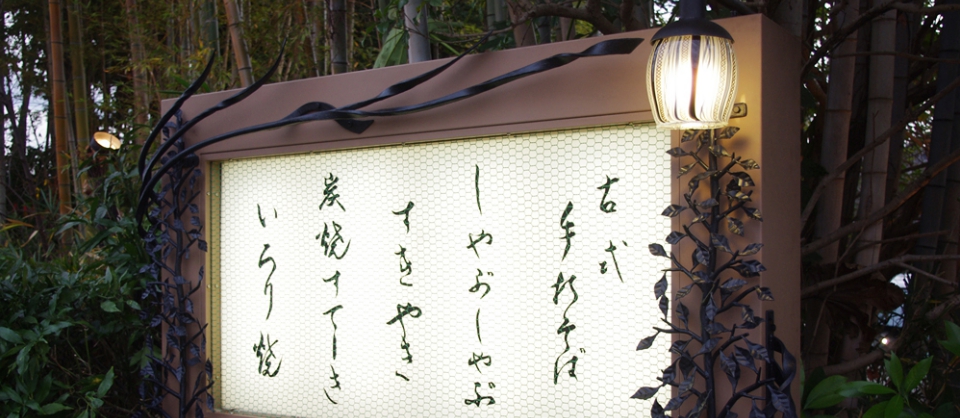 古式
手打そば
しゃぶしゃぶ
すきやき
炭焼すてーき
いろり焼